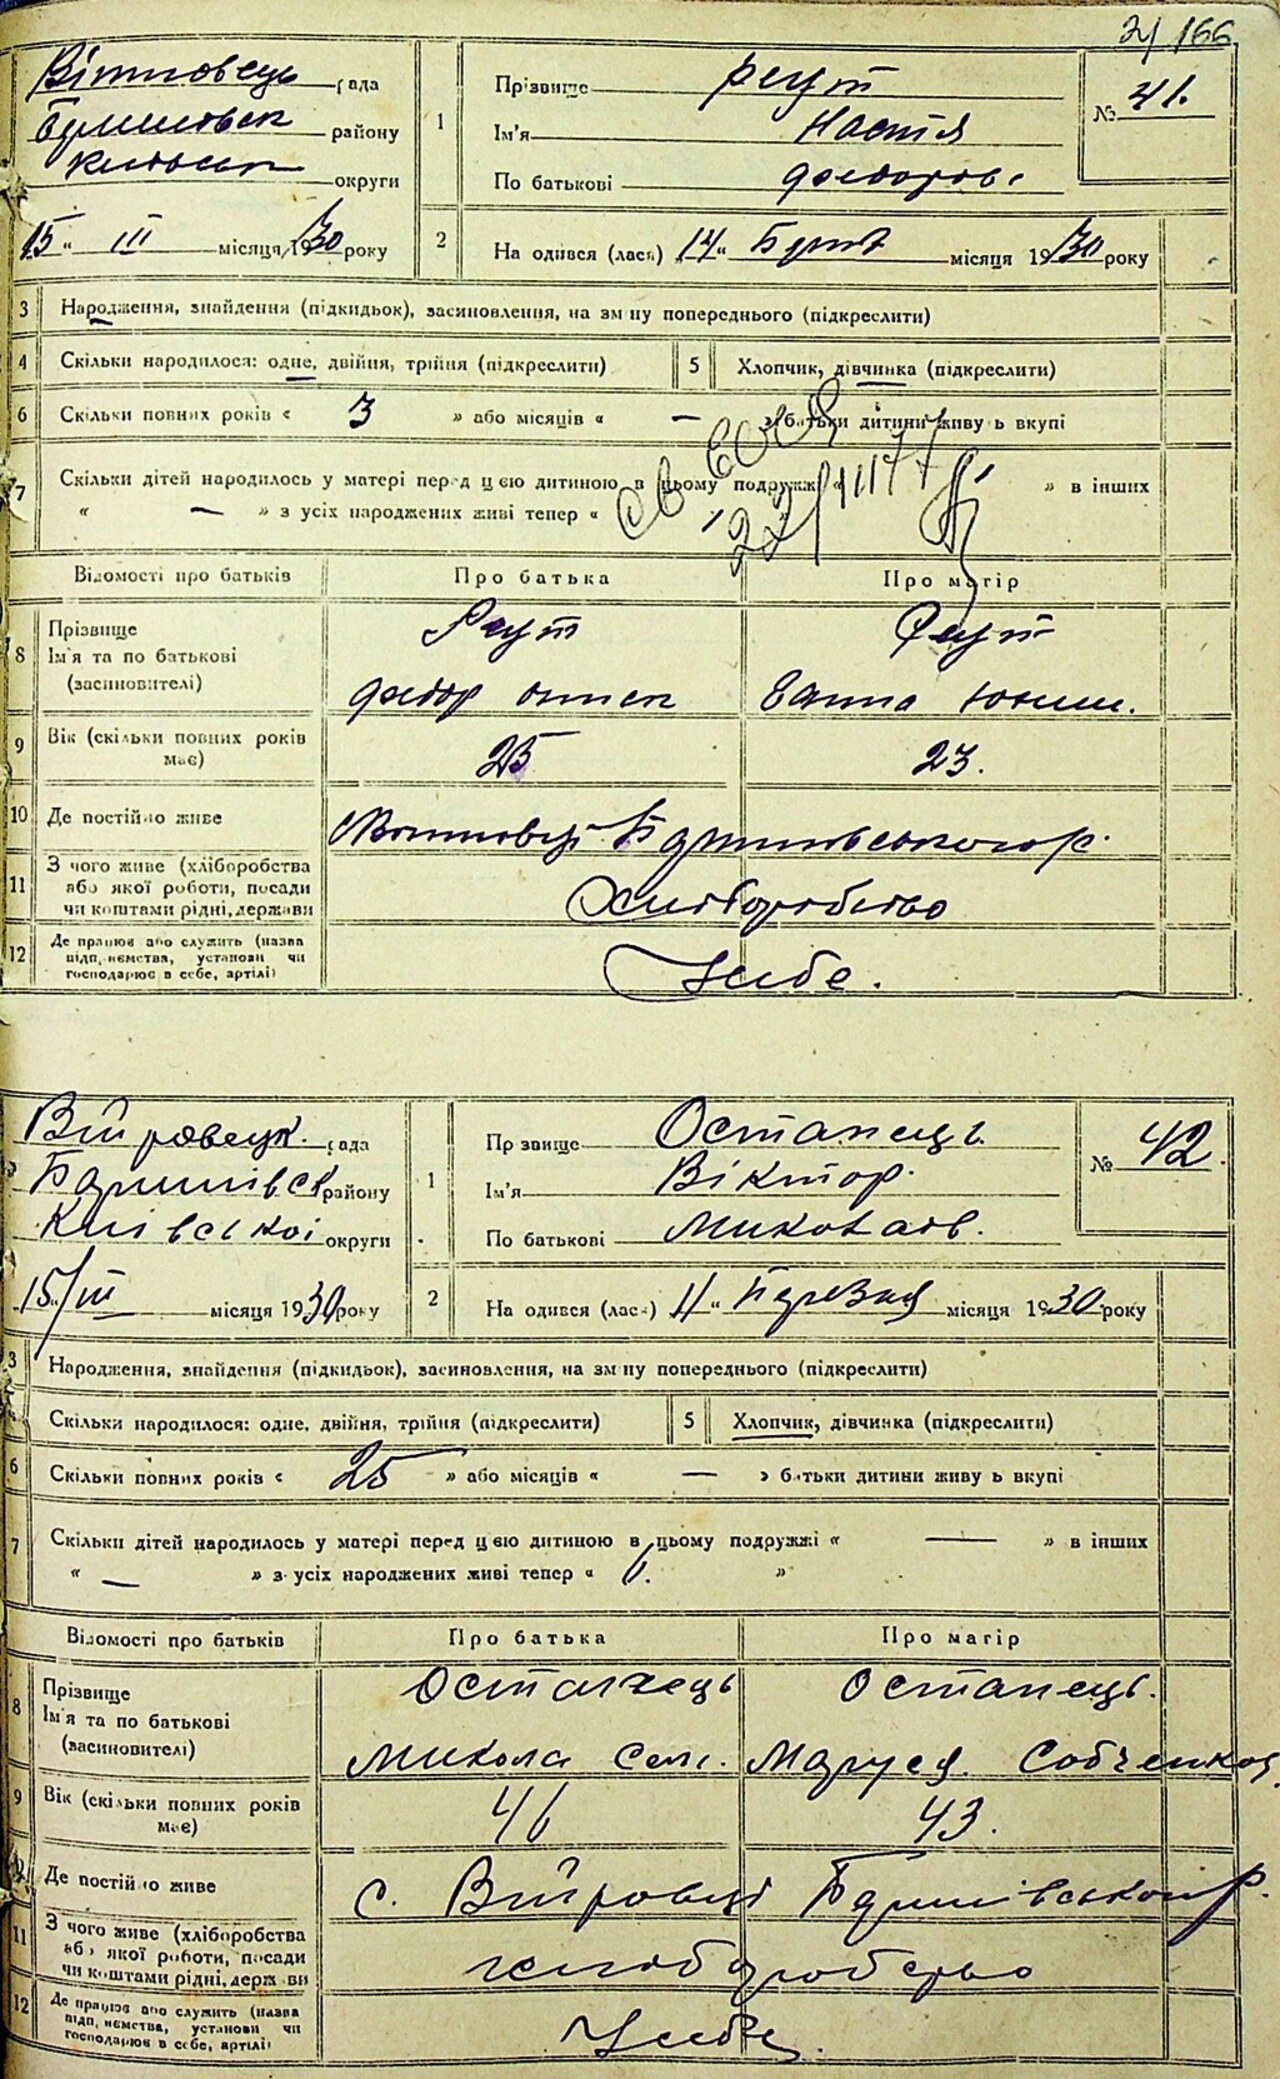 2/ 166
рада
району
округи
15 " III місяця 1930 року
1
Прізвище Реут
Ім'я Настя
По батькові Федоров.
№ 41.
2
На одився (лася) 14 " місяця 1930 року
3 Народження, знайдення (підкидьок), засиновлення, на зм ну попереднього (підкреслити)
4 Скільки народилося: одне, двійня, трійня (підкреслити) 5 Хлопчик, дівчинка (підкреслити)
6 Скільки повних років « 3 » або місяців « — » батьки дитини живу ь вкупі
7 Скільки дітей народилось у матері перед цією дитиною в цьому подружжі « » в інших
« — » з усіх народжених живі тепер «
Відомості про батьків Про батька Про матір
8 Прізвище
Ім'я та по батькові
(засиновителі)
Реут Реут
Федор Ганна
9 Вік (скільки повних років
має)
25 23.
10 Де постійно живе
11 З чого живе (хліборобства
або якої роботи, посади
чи коштами рідні, держави
Хліборобство
12 Де працює або служить (назва
підп, иємства, установи чи
господарює в себе, артілі)
У себе.
рада
Бориспівськ району
Київської округи
15/III місяця 1930 року
1
Пр звище Останець
Ім'я Віктор.
По батькові Миколаєв.
№ 42.
2
На одився (лася) 11 " Березня місяця 1930 року
3 Народження, знайдення (підкидьок), засиновлення, на зм ну попереднього (підкреслити)
Скільки народилося: одне, двійня, трійня (підкреслити) 5 Хлопчик, дівчинка (підкреслити)
6 Скільки повних років « 25 » або місяців « — » батьки дитини живу ь вкупі
7 Скільки дітей народилось у матері перед цією дитиною в цьому подружжі « — » в інших
« — » з усіх народжених живі тепер « 6. »
Відомості про батьків Про батька Про матір
8 Прізвище
Ім'я та по батькові
(засиновителі)
Останець Останець.
Микола Сем. Маруся. Собченкоя.
9 Вік (скільки повних років
має)
46 43.
Де постійно живе
с.
11 З чого живе (хліборобства
або якої роботи, посади
чи коштами рідні, держ ви
хліборобство
12 Де працює або служить (назва
підп, иємства, установи чи
господарює в себе, артілі)
У себе.